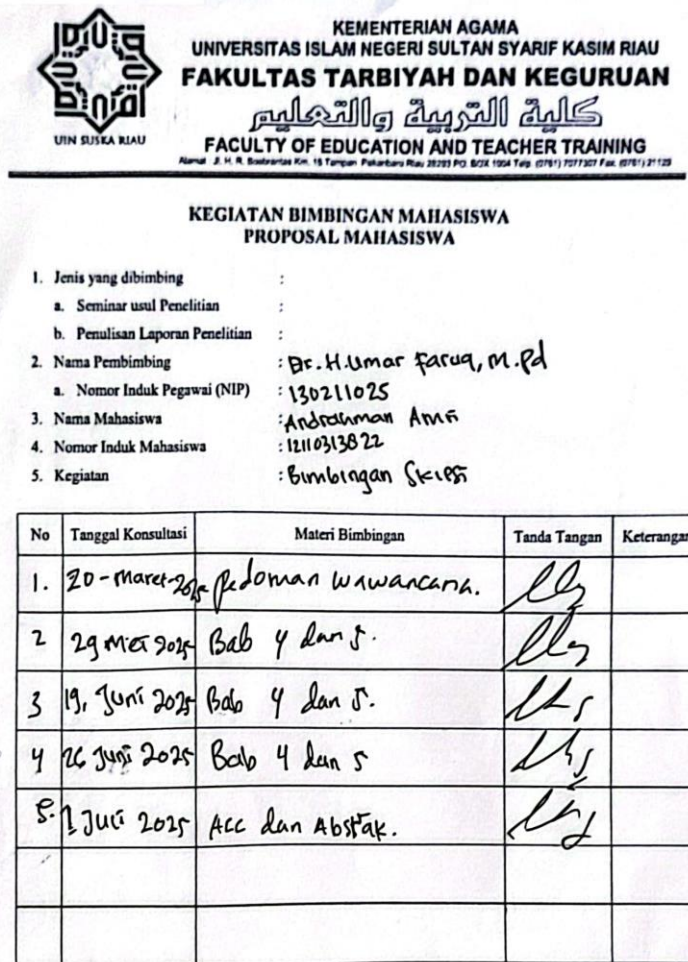 UIN SUSKA RIAU
KEMENTERIAN AGAMA
UNIVERSITAS ISLAM NEGERI SULTAN SYARIF KASIM RIAU
FAKULTAS TARBIYAH DAN KEGURUAN
كلية التربية والتعليم
FACULTY OF EDUCATION AND TEACHER TRAINING
Alamat : Jl. H. R. Soebrantas Km. 15 Tampan Pekanbaru Riau 28293 PO. BOX 1004 Telp. (0761) 7077307 Fax. (0761) 21129
KEGIATAN BIMBINGAN MAHASISWA
PROPOSAL MAHASISWA
1. Jenis yang dibimbing :
a. Seminar usul Penelitian :
b. Penulisan Laporan Penelitian :
2. Nama Pembimbing : Dr. H. Umar Faruq, M.Pd
a. Nomor Induk Pegawai (NIP) : 130211025
3. Nama Mahasiswa :
4. Nomor Induk Mahasiswa : 12110313822
5. Kegiatan : Bimbingan Skripsi
No Tanggal Konsultasi Materi Bimbingan Tanda Tangan Keterangan
1. 20-Maret-2025 Pedoman wawancara.
2 29 Mei 2025 Bab 4 dan 5.
3 19, Juni 2025 Bab 4 dan 5.
4 26 Juni 2025 Bab 4 dan 5
5. 1 Juli 2025 Acc dan Abstak.